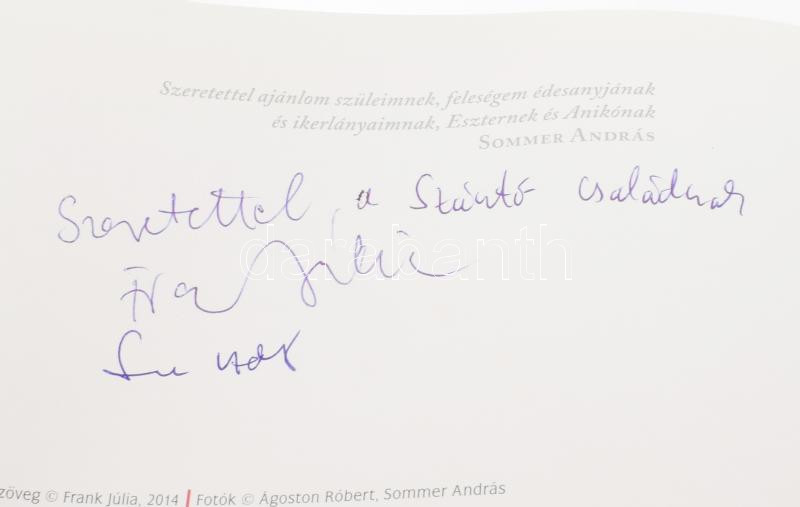 Szeretettel ajánlom szüleimnek, feleségem édesanyjának
és ikerlányaimnak, Eszternek és Anikónak
SOMMER ANDRÁS
Szeretettel a Szántó családnak
Júlia
darabanth
zöveg © Frank Júlia, 2014 | Fotók © Ágoston Róbert, Sommer András